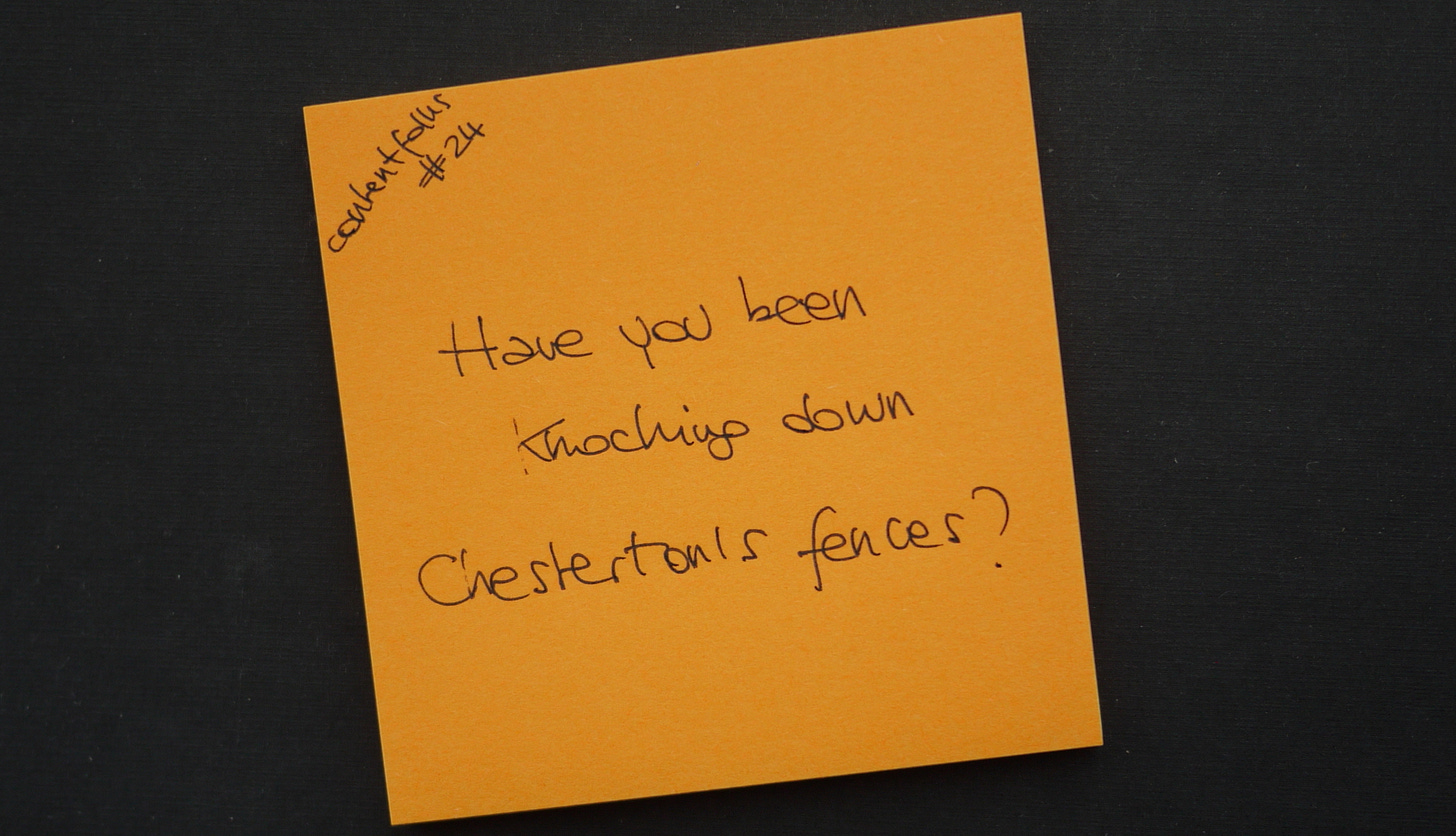 contentfolks
#24
Have you been
knocking down
Chesterton's fences?